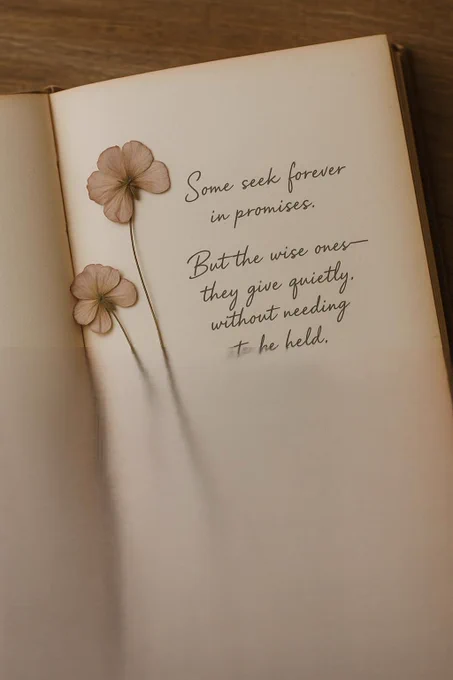 Some seek forever
in promises.
But the wise ones—
they give quietly,
without needing
to be held.